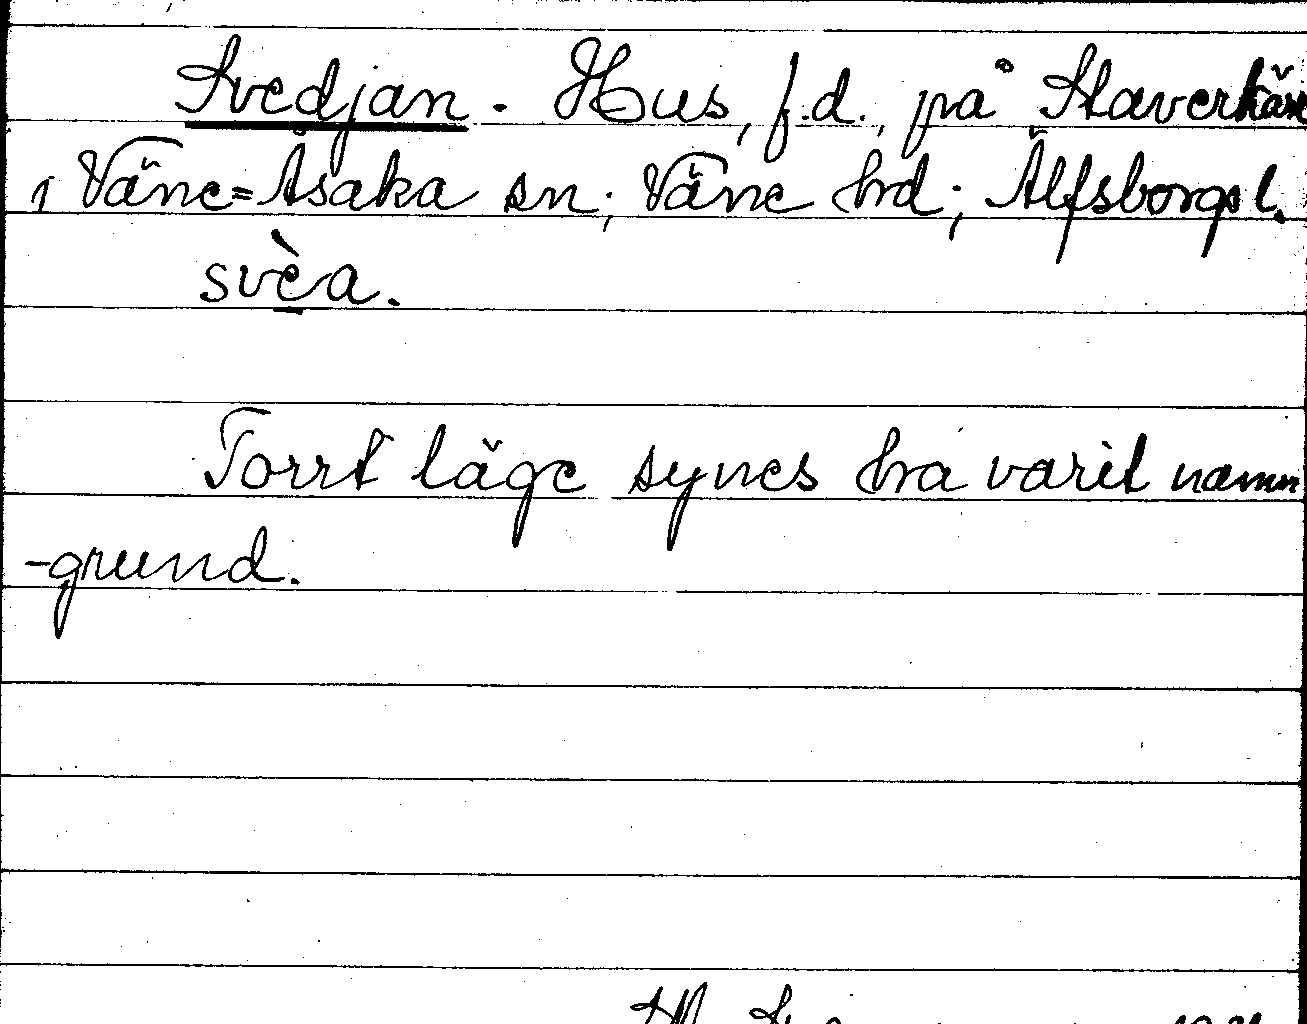 Svedjan. Hus, f.d., på Slaverkärr
i Väne=Åsaka sn; Väne hrd; Älfsborgs l.
svèa.
Torrt läge synes ha varit namn
-grund.